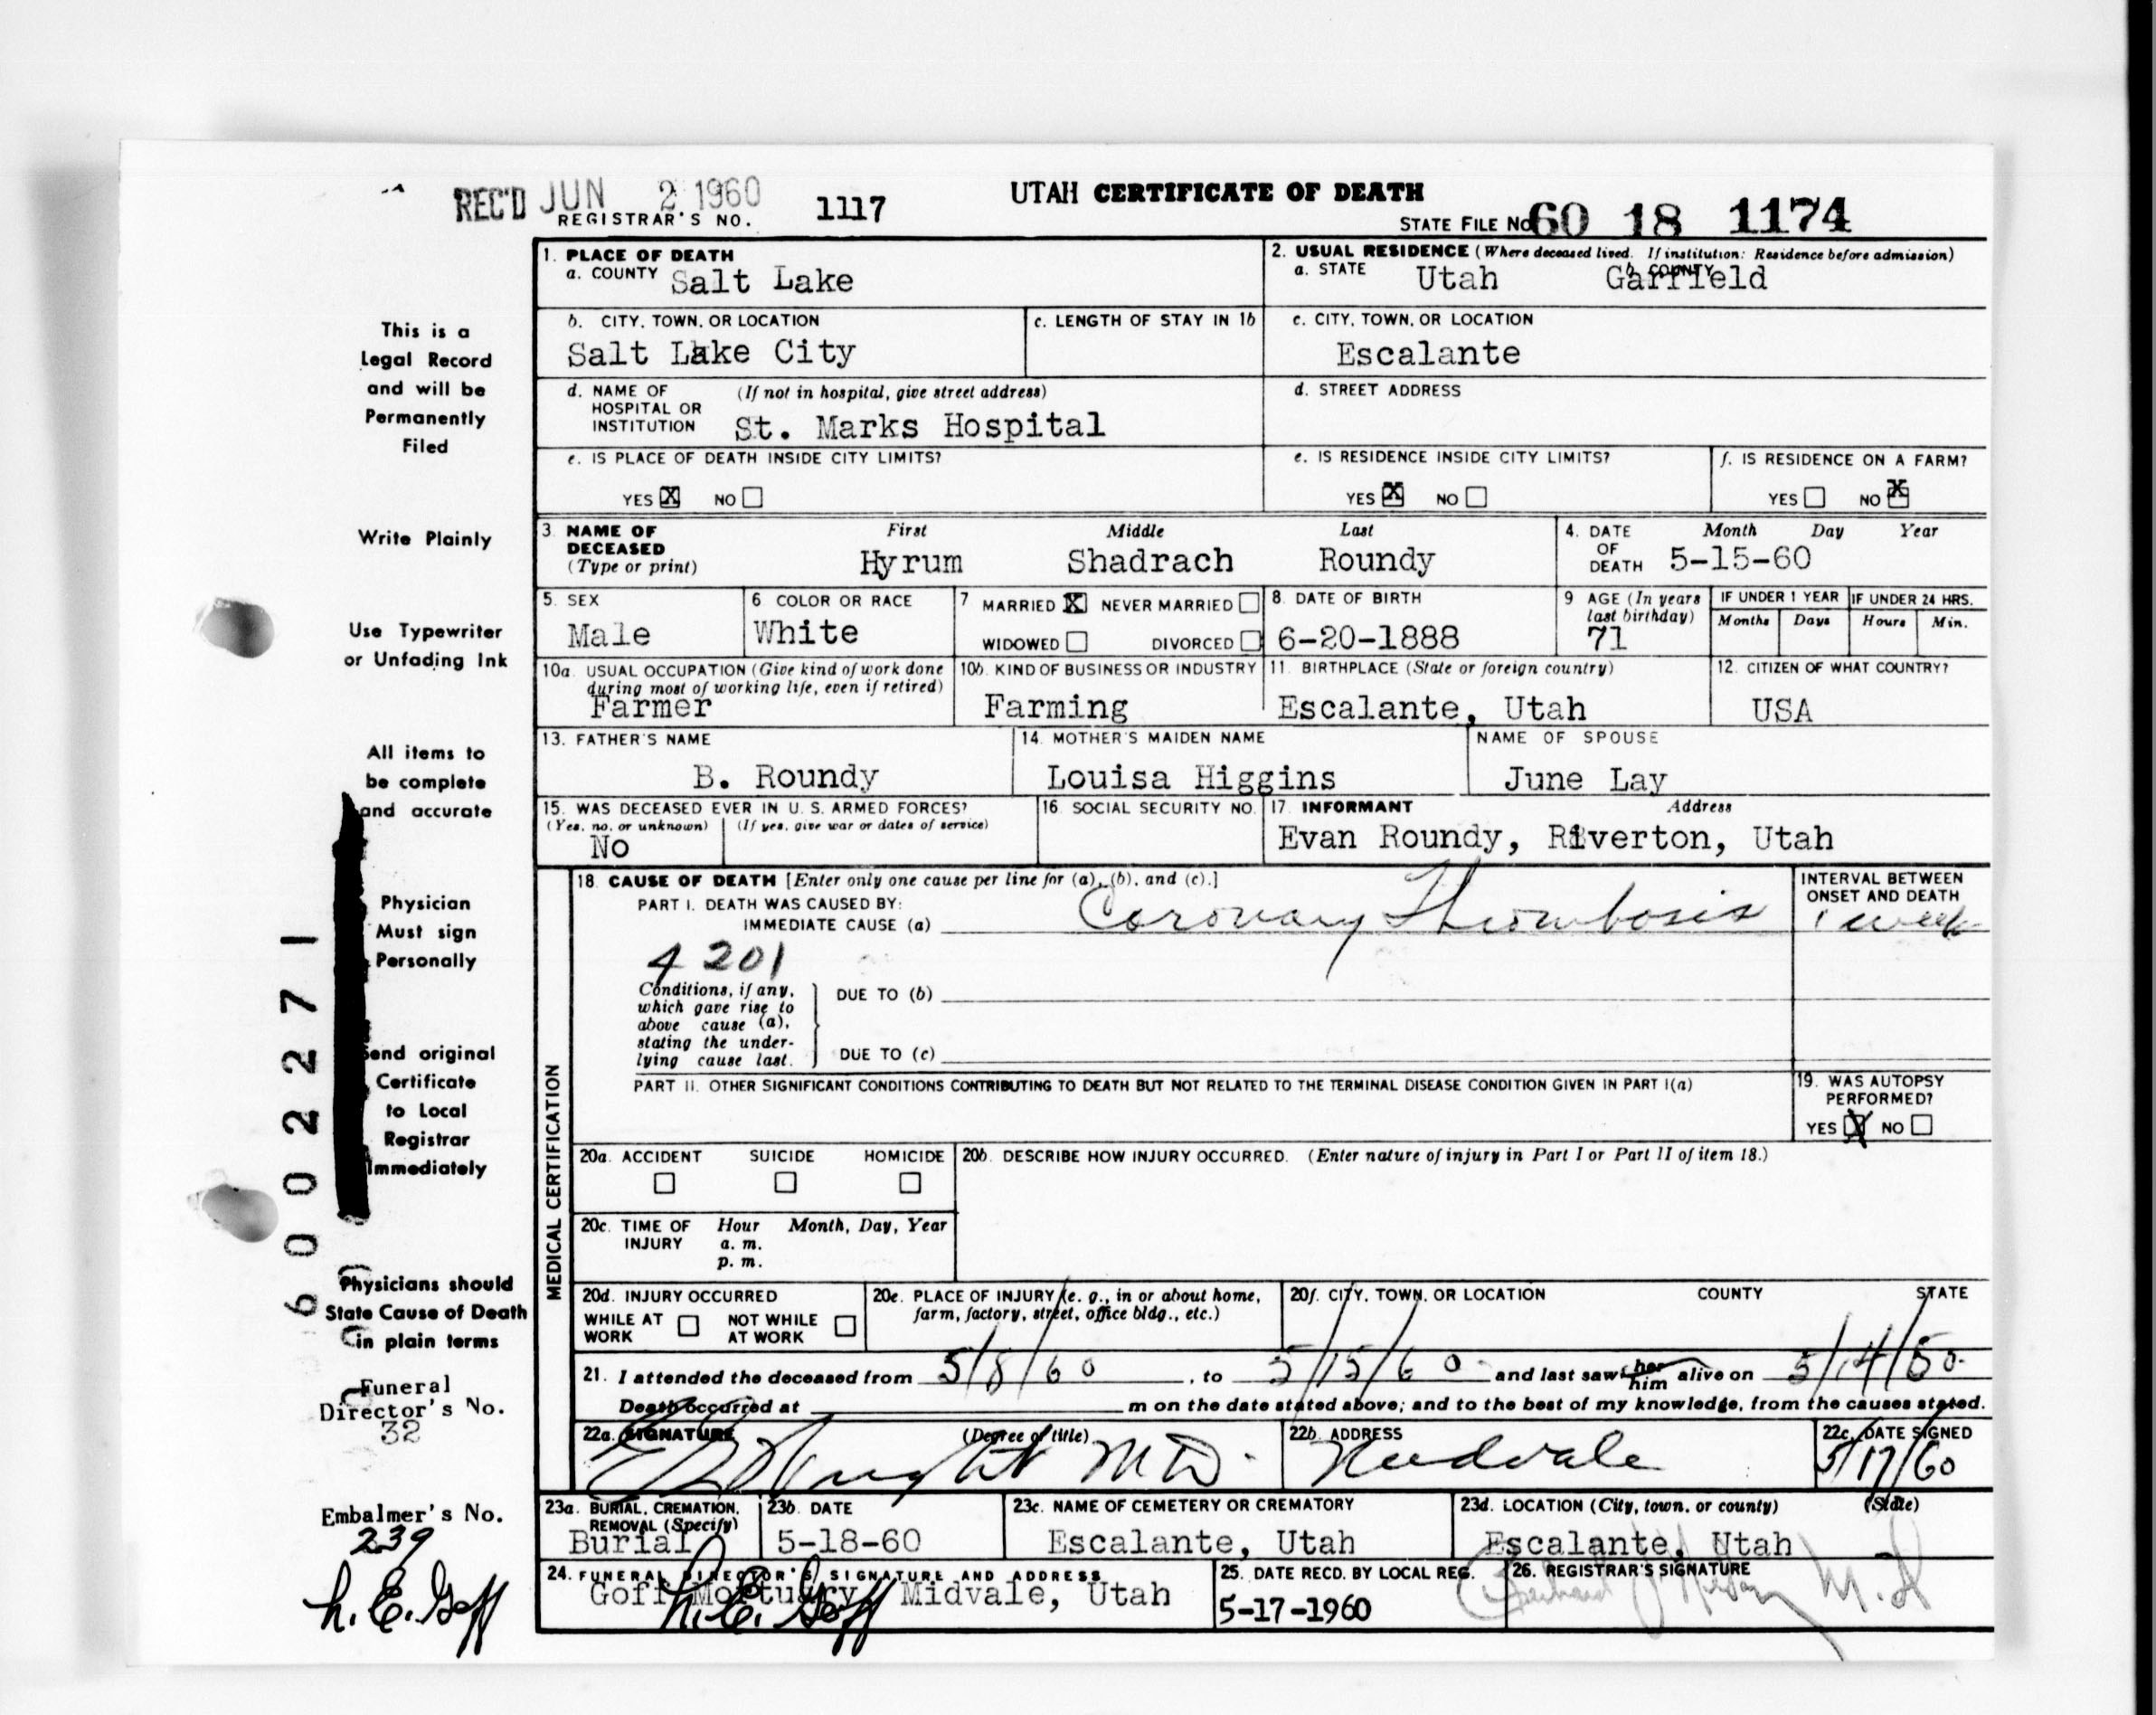 REC'D JUN 2 1960
REGISTRAR'S NO. 1117
UTAH CERTIFICATE OF DEATH
STATE FILE NO. 60 18 1174
This is a
Legal Record
and will be
Permanently
Filed
Write Plainly
Use Typewriter
or Unfading Ink
All items to
be complete
and accurate
Physician
Must sign
Personally
Send original
Certificate
to Local
Registrar
Immediately
Physicians should
State Cause of Death
in plain terms
Funeral
Director's No.
32
Embalmer's No.
239
h. E. Goff
6002271
1. PLACE OF DEATH
a. COUNTY Salt Lake
2. USUAL RESIDENCE (Where deceased lived. If institution: Residence before admission)
a. STATE Utah b. COUNTY Garfield
b. CITY, TOWN, OR LOCATION Salt Lake City
c. LENGTH OF STAY IN 1b
c. CITY, TOWN, OR LOCATION Escalante
d. NAME OF HOSPITAL OR INSTITUTION (If not in hospital, give street address) St. Marks Hospital
d. STREET ADDRESS
e. IS PLACE OF DEATH INSIDE CITY LIMITS?
YES X NO
e. IS RESIDENCE INSIDE CITY LIMITS?
YES X NO
f. IS RESIDENCE ON A FARM?
YES NO X
3. NAME OF DECEASED (Type or print)
First Middle Last
Hyrum Shadrach Roundy
4. DATE OF DEATH Month Day Year
5-15-60
5. SEX Male
6 COLOR OR RACE White
7 MARRIED X NEVER MARRIED
WIDOWED DIVORCED
8. DATE OF BIRTH 6-20-1888
9 AGE (In years last birthday) 71
IF UNDER 1 YEAR Months Days
IF UNDER 24 HRS. Hours Min.
10a. USUAL OCCUPATION (Give kind of work done during most of working life, even if retired) Farmer
10b. KIND OF BUSINESS OR INDUSTRY Farming
11. BIRTHPLACE (State or foreign country) Escalante, Utah
12. CITIZEN OF WHAT COUNTRY? USA
13. FATHER'S NAME B. Roundy
14. MOTHER'S MAIDEN NAME Louisa Higgins
NAME OF SPOUSE June Lay
15. WAS DECEASED EVER IN U. S. ARMED FORCES?
(Yes, no, or unknown) (If yes, give war or dates of service)
No
16. SOCIAL SECURITY NO.
17. INFORMANT Address
Evan Roundy, Riverton, Utah
MEDICAL CERTIFICATION
18. CAUSE OF DEATH [Enter only one cause per line for (a), (b), and (c).]
PART I. DEATH WAS CAUSED BY:
IMMEDIATE CAUSE (a) Coronary Thrombosis
INTERVAL BETWEEN ONSET AND DEATH
1 week
4201
Conditions, if any, which gave rise to above cause (a), stating the underlying cause last.
DUE TO (b)
DUE TO (c)
PART II. OTHER SIGNIFICANT CONDITIONS CONTRIBUTING TO DEATH BUT NOT RELATED TO THE TERMINAL DISEASE CONDITION GIVEN IN PART I(a)
19. WAS AUTOPSY PERFORMED?
YES X NO
20a. ACCIDENT SUICIDE HOMICIDE
20b. DESCRIBE HOW INJURY OCCURRED. (Enter nature of injury in Part I or Part II of item 18.)
20c. TIME OF INJURY Hour Month, Day, Year
a. m.
p. m.
20d. INJURY OCCURRED
WHILE AT WORK NOT WHILE AT WORK
20e. PLACE OF INJURY (e. g., in or about home, farm, factory, street, office bldg., etc.)
20f. CITY, TOWN, OR LOCATION COUNTY STATE
21. I attended the deceased from 5/8/60, to 5/15/60 and last saw her him alive on 5/14/60.
Death occurred at m on the date stated above; and to the best of my knowledge, from the causes stated.
22a. SIGNATURE (Degree or title)
MD.
22b. ADDRESS
22c. DATE SIGNED
5/17/60
23a. BURIAL, CREMATION, REMOVAL (Specify) Burial
23b. DATE 5-18-60
23c. NAME OF CEMETERY OR CREMATORY Escalante, Utah
23d. LOCATION (City, town, or county) (State)
Escalante, Utah
24. FUNERAL DIRECTOR'S SIGNATURE AND ADDRESS
Goff Mortuary Midvale, Utah
h. E. Goff
25. DATE RECD. BY LOCAL REG.
5-17-1960
26. REGISTRAR'S SIGNATURE
M.D.